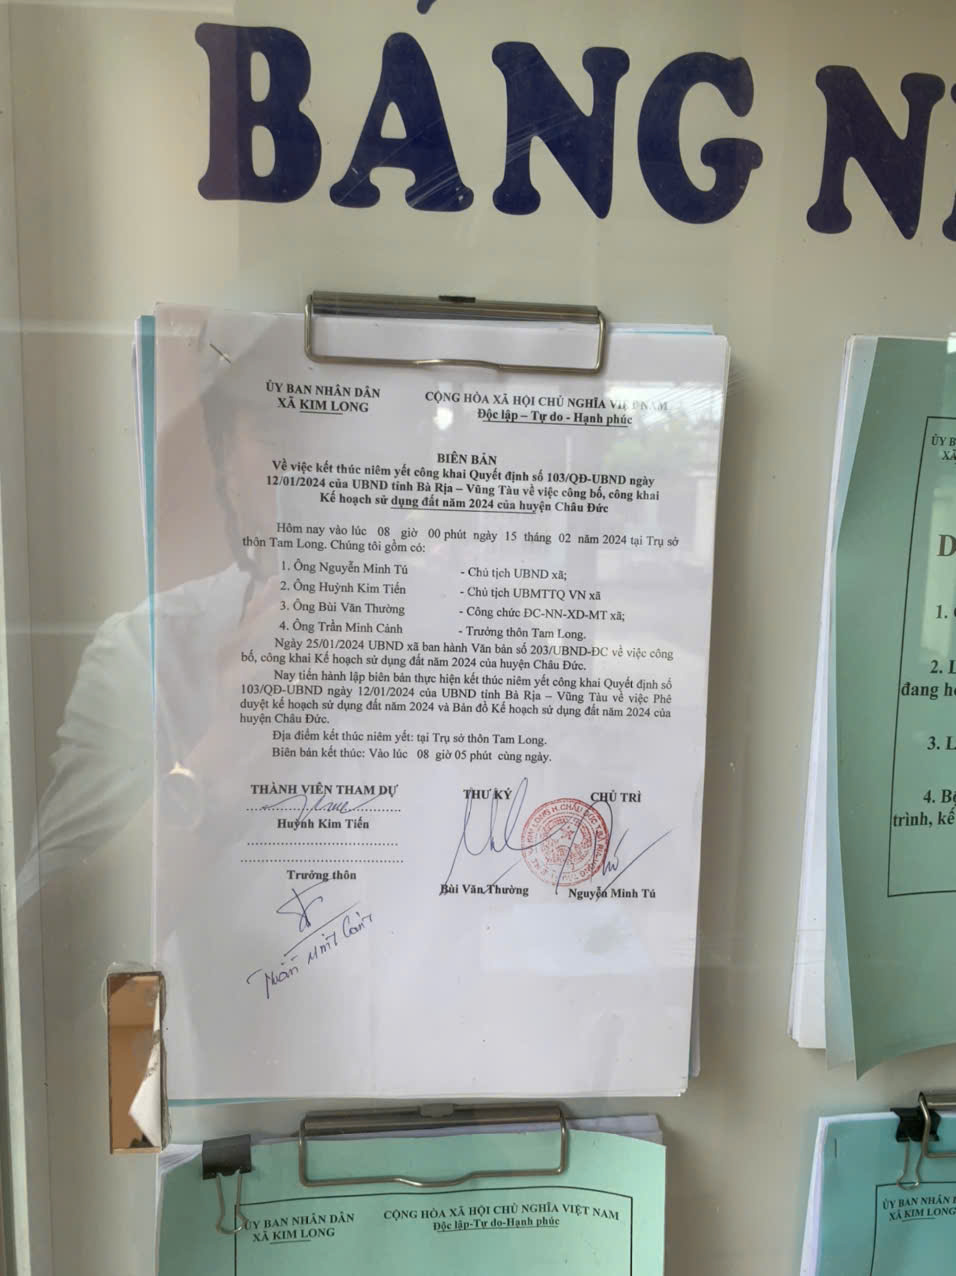 BẢNG N
ỦY BAN NHÂN DÂN
XÃ KIM LONG
CỘNG HÒA XÃ HỘI CHỦ NGHĨA VIỆT NAM
Độc lập – Tự do - Hạnh phúc
BIÊN BẢN
Về việc kết thúc niêm yết công khai Quyết định số 103/QĐ-UBND ngày
12/01/2024 của UBND tỉnh Bà Rịa – Vũng Tàu về việc công bố, công khai
Kế hoạch sử dụng đất năm 2024 của huyện Châu Đức
Hôm nay vào lúc 08 giờ 00 phút ngày 15 tháng 02 năm 2024 tại Trụ sở
thôn Tam Long. Chúng tôi gồm có:
1. Ông Nguyễn Minh Tú - Chủ tịch UBND xã;
2. Ông Huỳnh Kim Tiến - Chủ tịch UBMTTQ VN xã
3. Ông Bùi Văn Thường - Công chức ĐC-NN-XD-MT xã;
4. Ông Trần Minh Cảnh - Trưởng thôn Tam Long.
Ngày 25/01/2024 UBND xã ban hành Văn bản số 203/UBND-ĐC về việc công
bố, công khai Kế hoạch sử dụng đất năm 2024 của huyện Châu Đức.
Nay tiến hành lập biên bản thực hiện kết thúc niêm yết công khai Quyết định số
103/QĐ-UBND ngày 12/01/2024 của UBND tỉnh Bà Rịa – Vũng Tàu về việc Phê
duyệt kế hoạch sử dụng đất năm 2024 và Bản đồ Kế hoạch sử dụng đất năm 2024 của
huyện Châu Đức.
Địa điểm kết thúc niêm yết: tại Trụ sở thôn Tam Long.
Biên bản kết thúc: Vào lúc 08 giờ 05 phút cùng ngày.
THÀNH VIÊN THAM DỰ
THƯ KÝ
CHỦ TRÌ
Huỳnh Kim Tiến
Trưởng thôn
Bùi Văn Thường
Nguyễn Minh Tú
Trần Minh Cảnh
ỦY BAN NHÂN DÂN
XÃ KIM LONG
CỘNG HÒA XÃ HỘI CHỦ NGHĨA VIỆT NAM
Độc lập-Tự do-Hạnh phúc
ỦY B
XÃ
D
1.
2. L
đang h
3. L
4. B
trình, kế
ỦY BAN NHÂN
XÃ KIM LONG